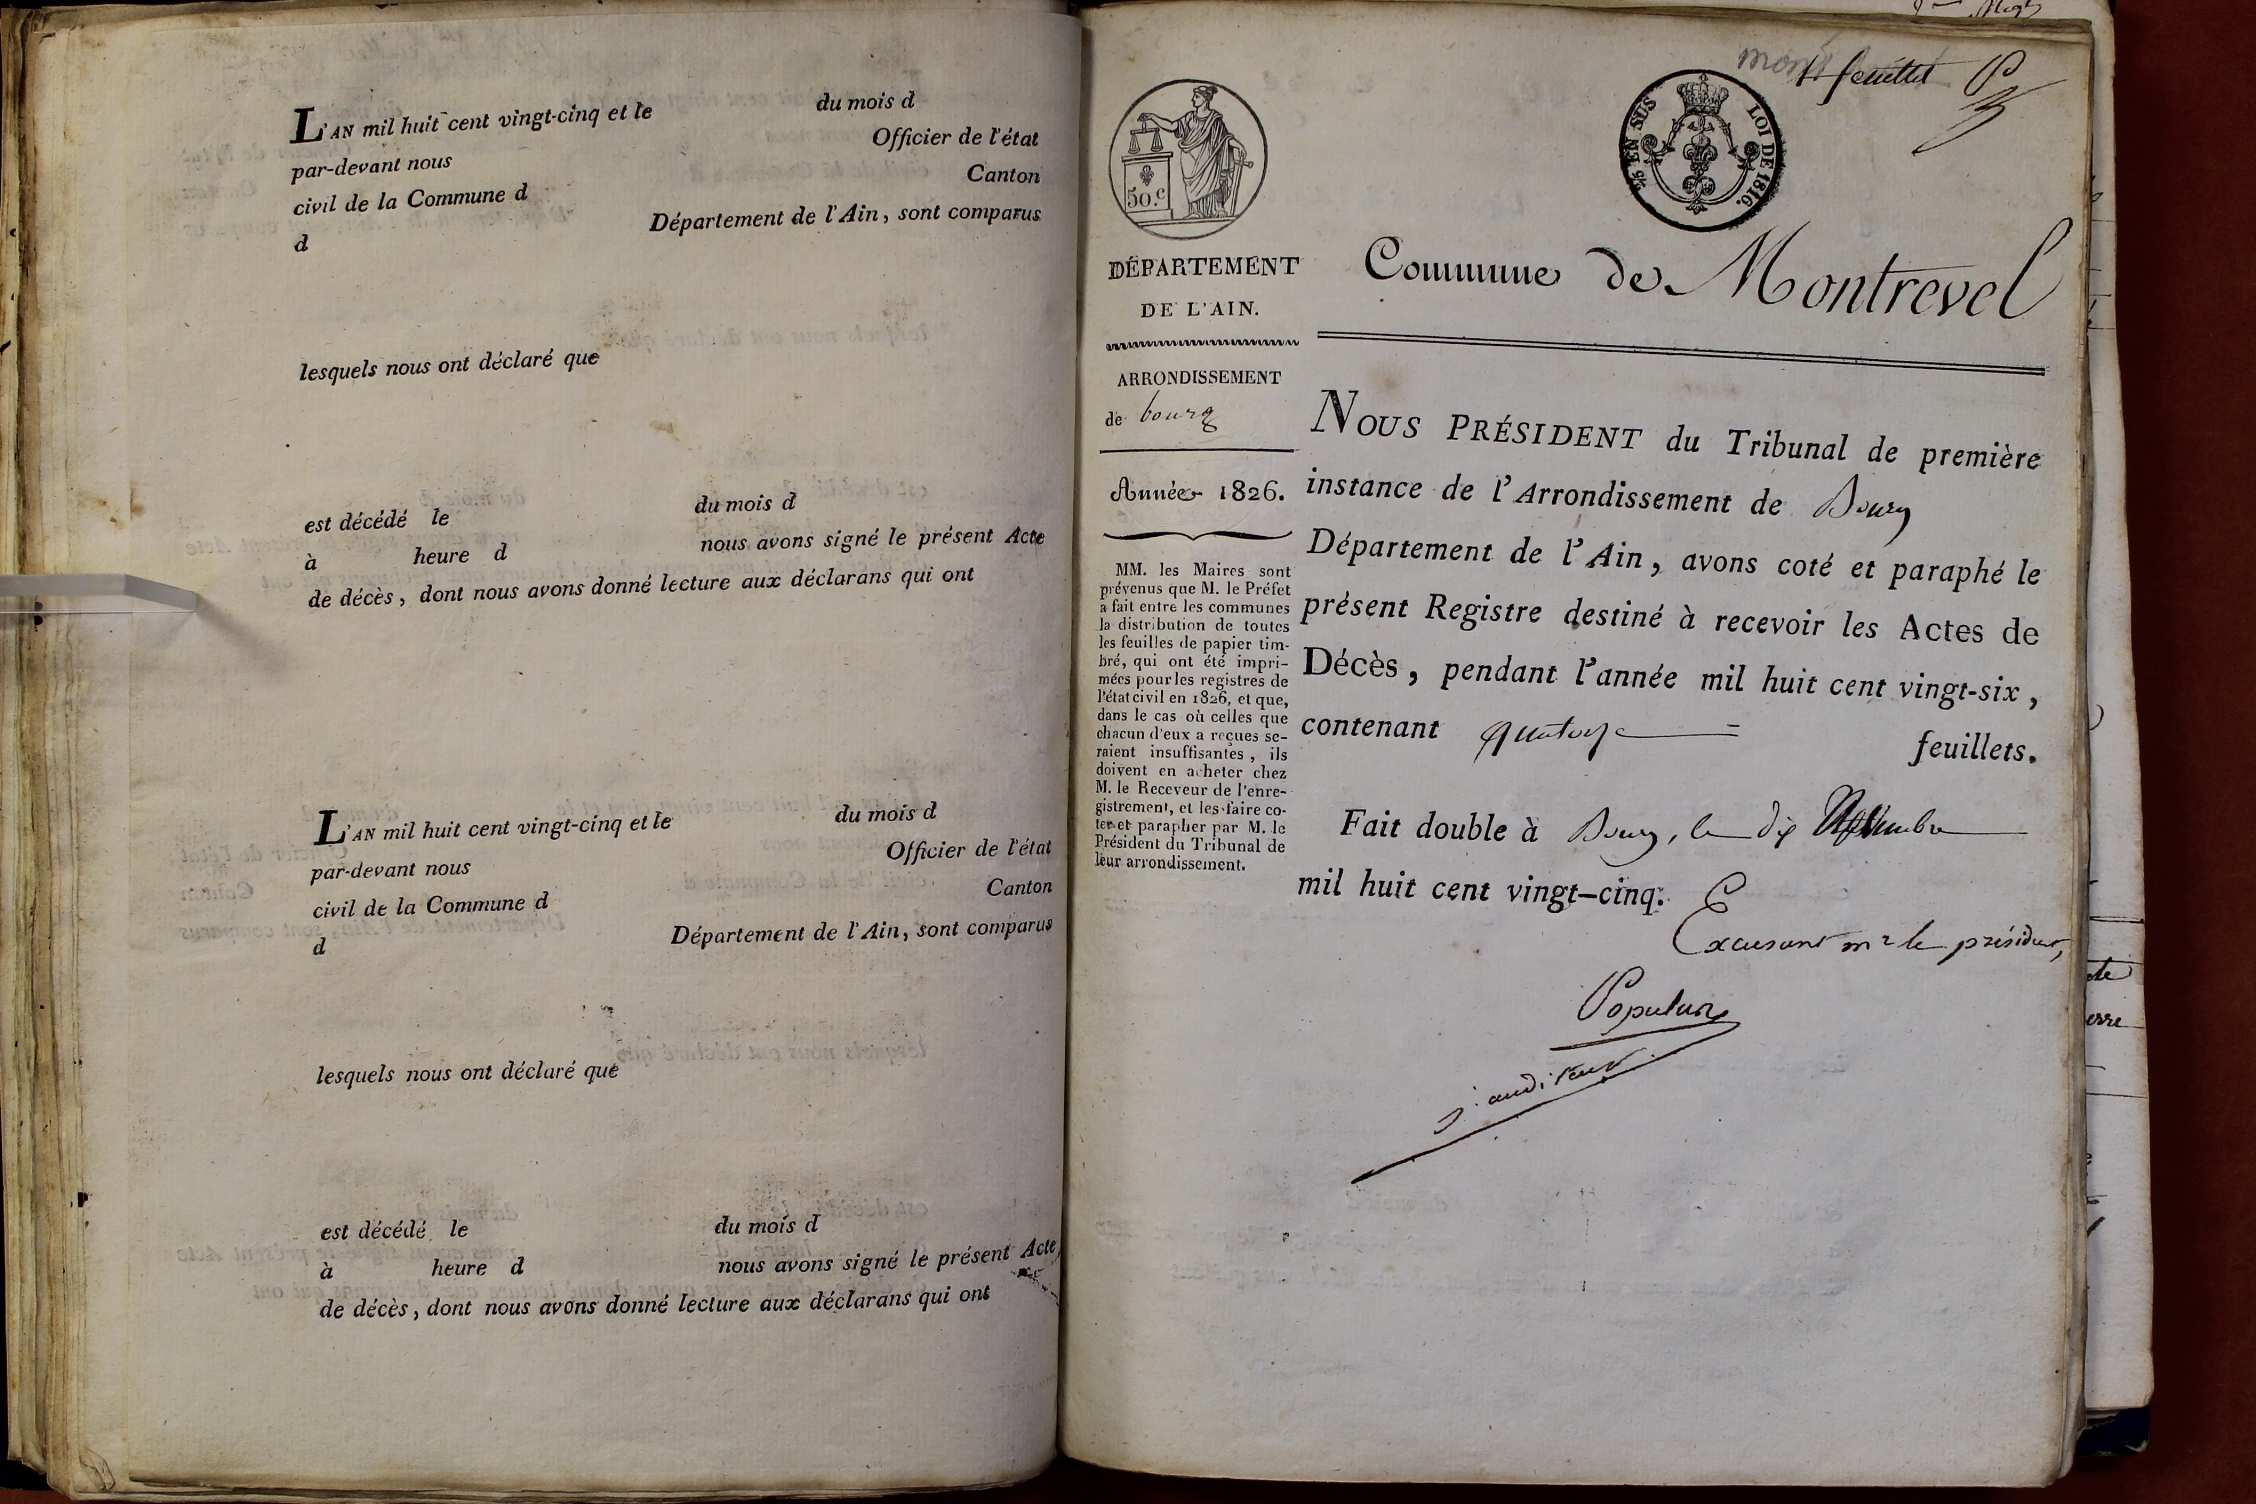 L'AN mil huit cent vingt-cinq et le du mois d
par-devant nous Officier de l'état
civil de la Commune d Canton
d Département de l'Ain, sont comparus
lesquels nous ont déclaré que
est décédé le du mois d
à heure d nous avons signé le présent Acte
de décès, dont nous avons donné lecture aux déclarans qui ont
L'AN mil huit cent vingt-cinq et le du mois d
par-devant nous Officier de l'état
civil de la Commune d Canton
d Département de l'Ain, sont comparus
lesquels nous ont déclaré que
est décédé le du mois d
à heure d nous avons signé le présent Acte
de décès, dont nous avons donné lecture aux déclarans qui ont
feuillet
50.c
EN SUS LOI DE 1816.
DÉPARTEMENT
DE L'AIN.
ARRONDISSEMENT
de bourg
Année 1826.
MM. les Maires sont
prévenus que M. le Préfet
a fait entre les communes
la distribution de toutes
les feuilles de papier tim-
bré, qui ont été impri-
mées pour les registres de
l'état civil en 1826, et que,
dans le cas où celles que
chacun d'eux a reçues se-
raient insuffisantes, ils
doivent en acheter chez
M. le Receveur de l'enre-
gistrement, et les faire co-
ter et parapher par M. le
Président du Tribunal de
leur arrondissement.
Commune de Montrevel
NOUS PRÉSIDENT du Tribunal de première
instance de l'Arrondissement de Bourg
Département de l'Ain, avons coté et paraphé le
présent Registre destiné à recevoir les Actes de
Décès, pendant l'année mil huit cent vingt-six,
contenant quatorze feuillets.
Fait double à Bourg, le dix Novembre
mil huit cent vingt-cinq.
Excusant mr le président,
Populus
j. auditeur